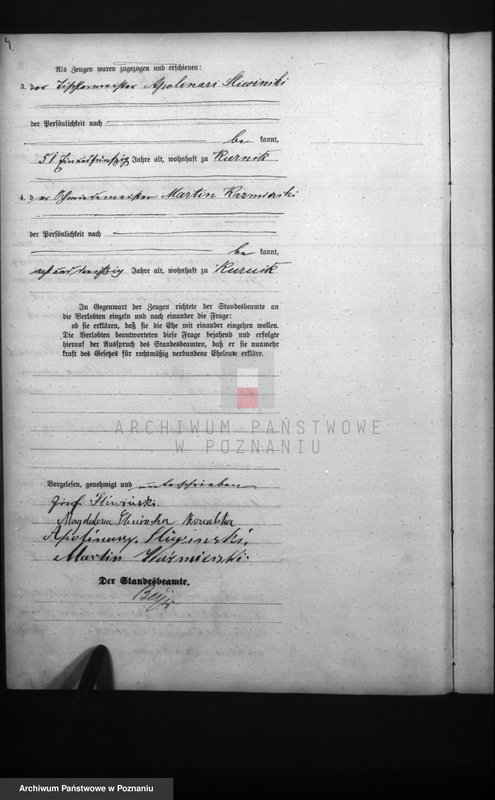 4.
Als Zeugen waren zugezogen und erschienen:
3. der Tischlermeister Apolinari Sliwinski
der Persönlichkeit nach
be kannt,
51 Einundfünfzig Jahre alt, wohnhaft zu Kurnik
4. d er Schmiedemeister Martin Kazmierski
der Persönlichkeit nach
be kannt,
acht und dreißig Jahre alt, wohnhaft zu Kurnik
In Gegenwart der Zeugen richtete der Standesbeamte an
die Verlobten einzeln und nach einander die Frage:
ob sie erklären, daß sie die Ehe mit einander eingehen wollen.
Die Verlobten beantworteten diese Frage bejahend und erfolgte
hierauf der Ausspruch des Standesbeamten, daß er sie nunmehr
kraft des Gesetzes für rechtmäßig verbundene Eheleute erkläre.
ARCHIWUM PAŃSTWOWE
W POZNANIU
Vorgelesen, genehmigt und unterschrieben
Józef Sliwinski.
Magdalena Sliwinska
Apolinary Sliwinski.
Martin Kaźmierski.
Der Standesbeamte.
Archiwum Państwowe w Poznaniu